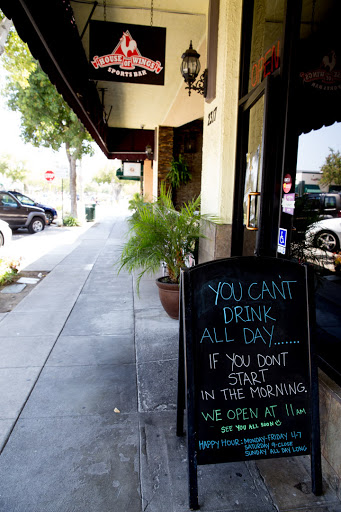 HOUSE OF WINGS
SPORTS BAR
YOU CAN'T
DRINK
ALL DAY.......
IF YOU DONT
START
IN THE MORNING.
WE OPEN AT 11AM
SEE YOU ALL SOON
HAPPY HOUR: MONDAY-FRIDAY 4-7
SATURDAY 9-CLOSE
SUNDAY ALL DAY LONG